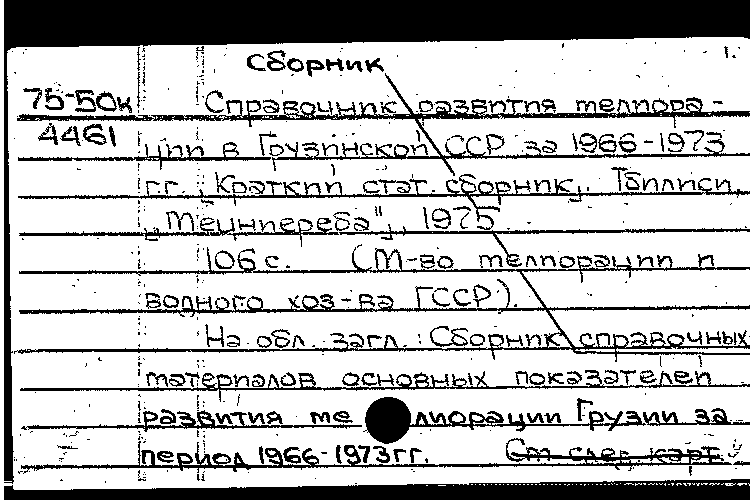 Сборник
1.
75-50к Справочник развития мелиора-
4461 ции в Грузинской ССР за 1966-1973
гг. [Краткий стат. сборник]. Тбилиси,
["Мецниереба"], 1975.
106 с. (М-во мелиорации и
водного хоз-ва ГССР).
На обл. загл.: Сборник справочных
материалов основных показателей
развития мелиорации Грузии за
период 1966-1973гг. См след. карт.